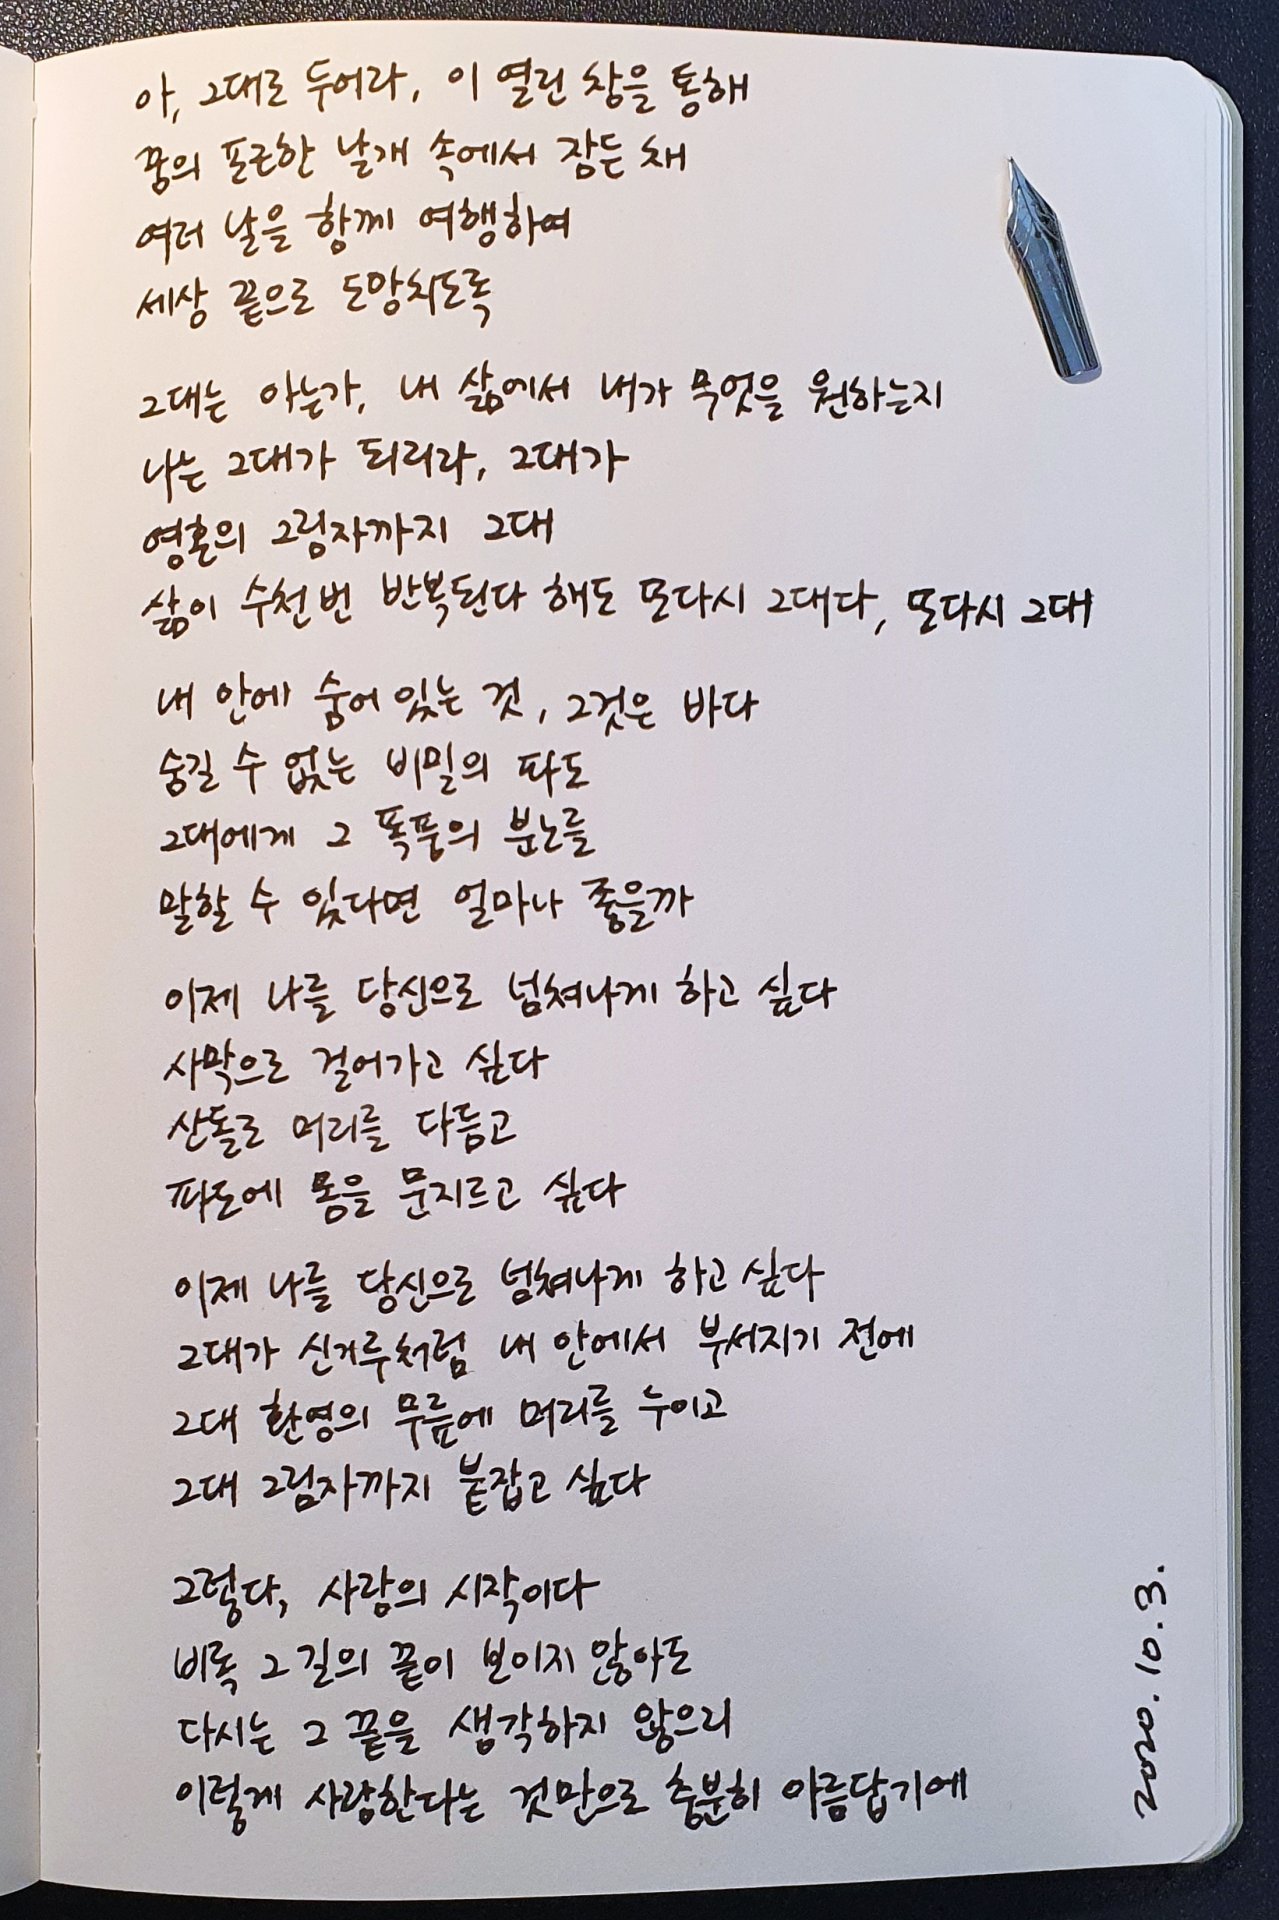 아, 그대로 두어라, 이 열린 창을 통해
꿈의 포근한 날개 속에서 잠든 채
여러 날을 함께 여행하여
세상 끝으로 도망치도록
그대는 아는가, 내 삶에서 내가 무엇을 원하는지
나는 그대가 되리라, 그대가
영혼의 그림자까지 그대
삶이 수천 번 반복된다 해도 또다시 그대다, 또다시 그대
내 안에 숨어 있는 것, 그것은 바다
숨길 수 없는 비밀의 파도
그대에게 그 폭풍의 분노를
말할 수 있다면 얼마나 좋을까
이제 나를 당신으로 넘쳐나게 하고 싶다
사막으로 걸어가고 싶다
산돌로 머리를 다듬고
파도에 몸을 문지르고 싶다
이제 나를 당신으로 넘쳐나게 하고 싶다
그대가 신기루처럼 내 안에서 부서지기 전에
그대 환영의 무릎에 머리를 누이고
그대 그림자까지 붙잡고 싶다
그렇다, 사랑의 시작이다
비록 그 길의 끝이 보이지 않아도
다시는 그 끝을 생각하지 않으리
이렇게 사랑한다는 것만으로 충분히 아름답기에
2020. 10. 3.